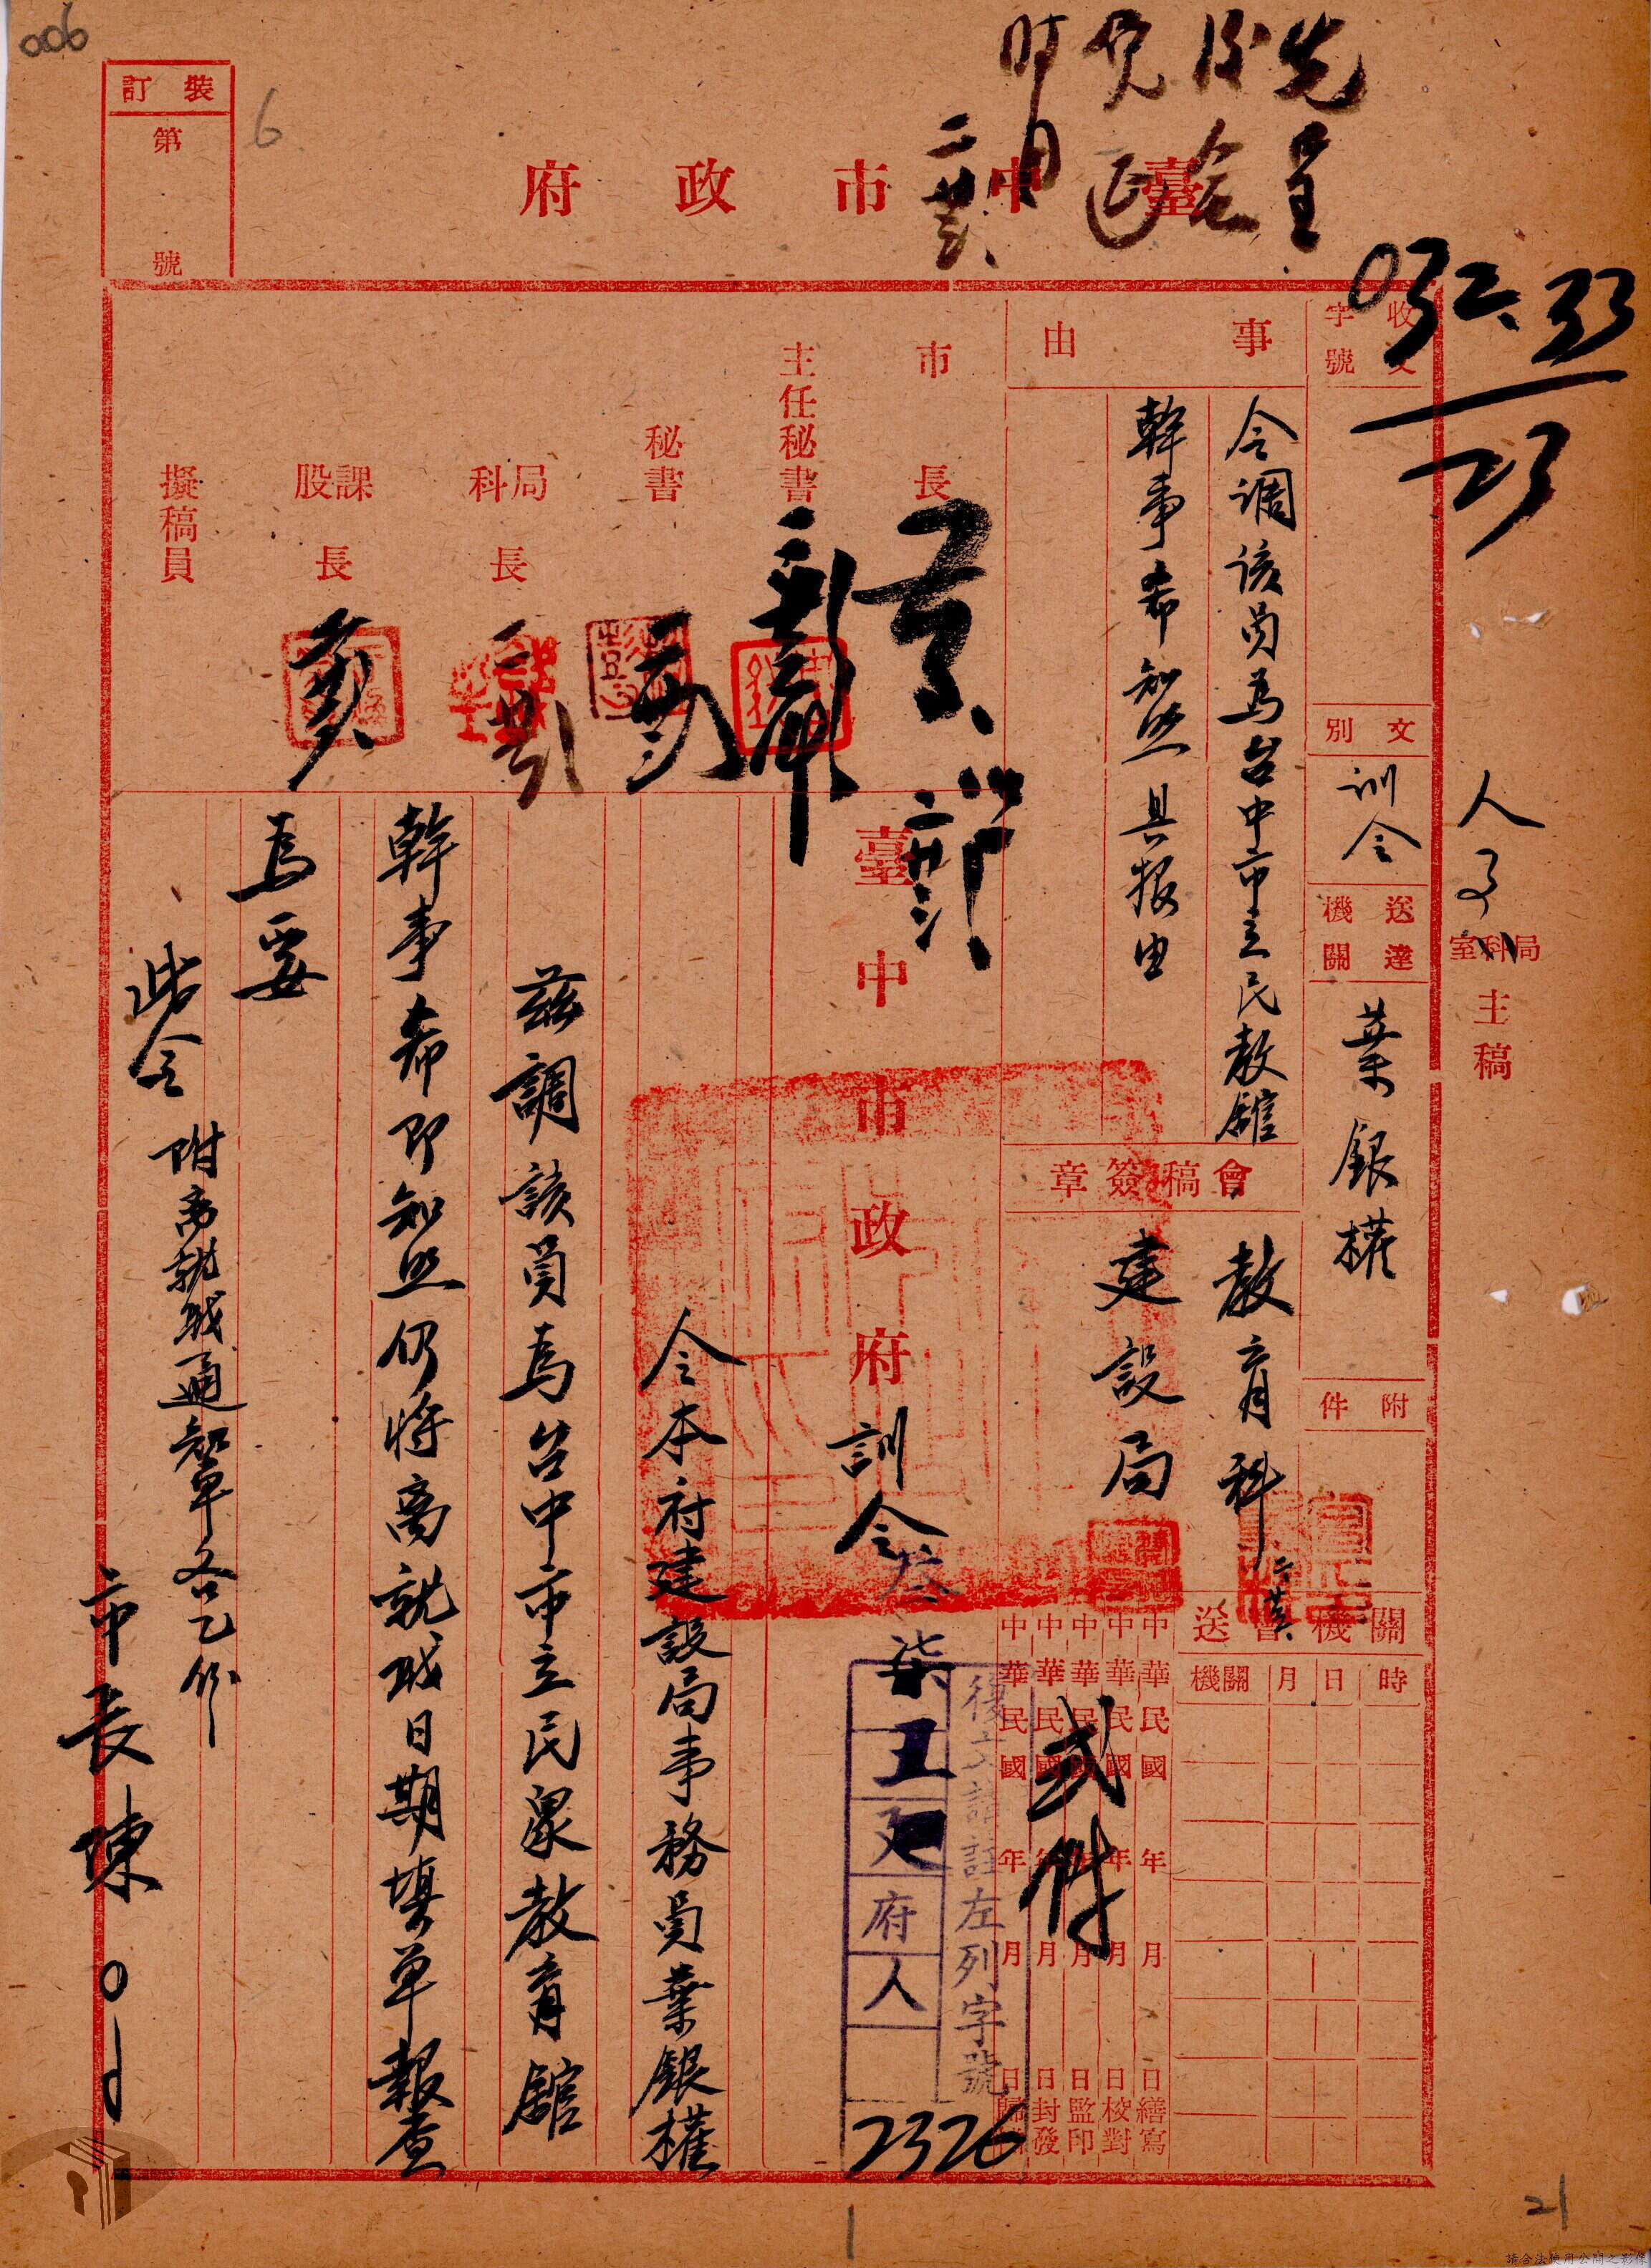 006
6
裝訂
第 號
先呈
臺中市政府
收文
字號
文別
訓令
送達機關
葉銀權
附件
人事室
局科室主稿
事由
令調该員為台中市立民教館
幹事希知照具报由
會稿簽章
教育科
建設局
市長
主任秘書
秘書
局科長
課股長
擬稿員
關機會送
機關 月 日 時
中華民國 年 月 日繕寫
中華民國 年 月 日校對
中華民國 年 月 日監印
中華民國 年 月 日封發
中華民國 年 月 日歸檔
貳件
復文請註左列字號
府人
2326
臺中市政府訓令
令本府建設局事務員葉銀權
茲調該員為台中市立民眾教育館
幹事希即知照仍將离就職日期填单報查
為要
此令
附离就职通知单各乙份
市長陳
21
請合法使用公開之影像